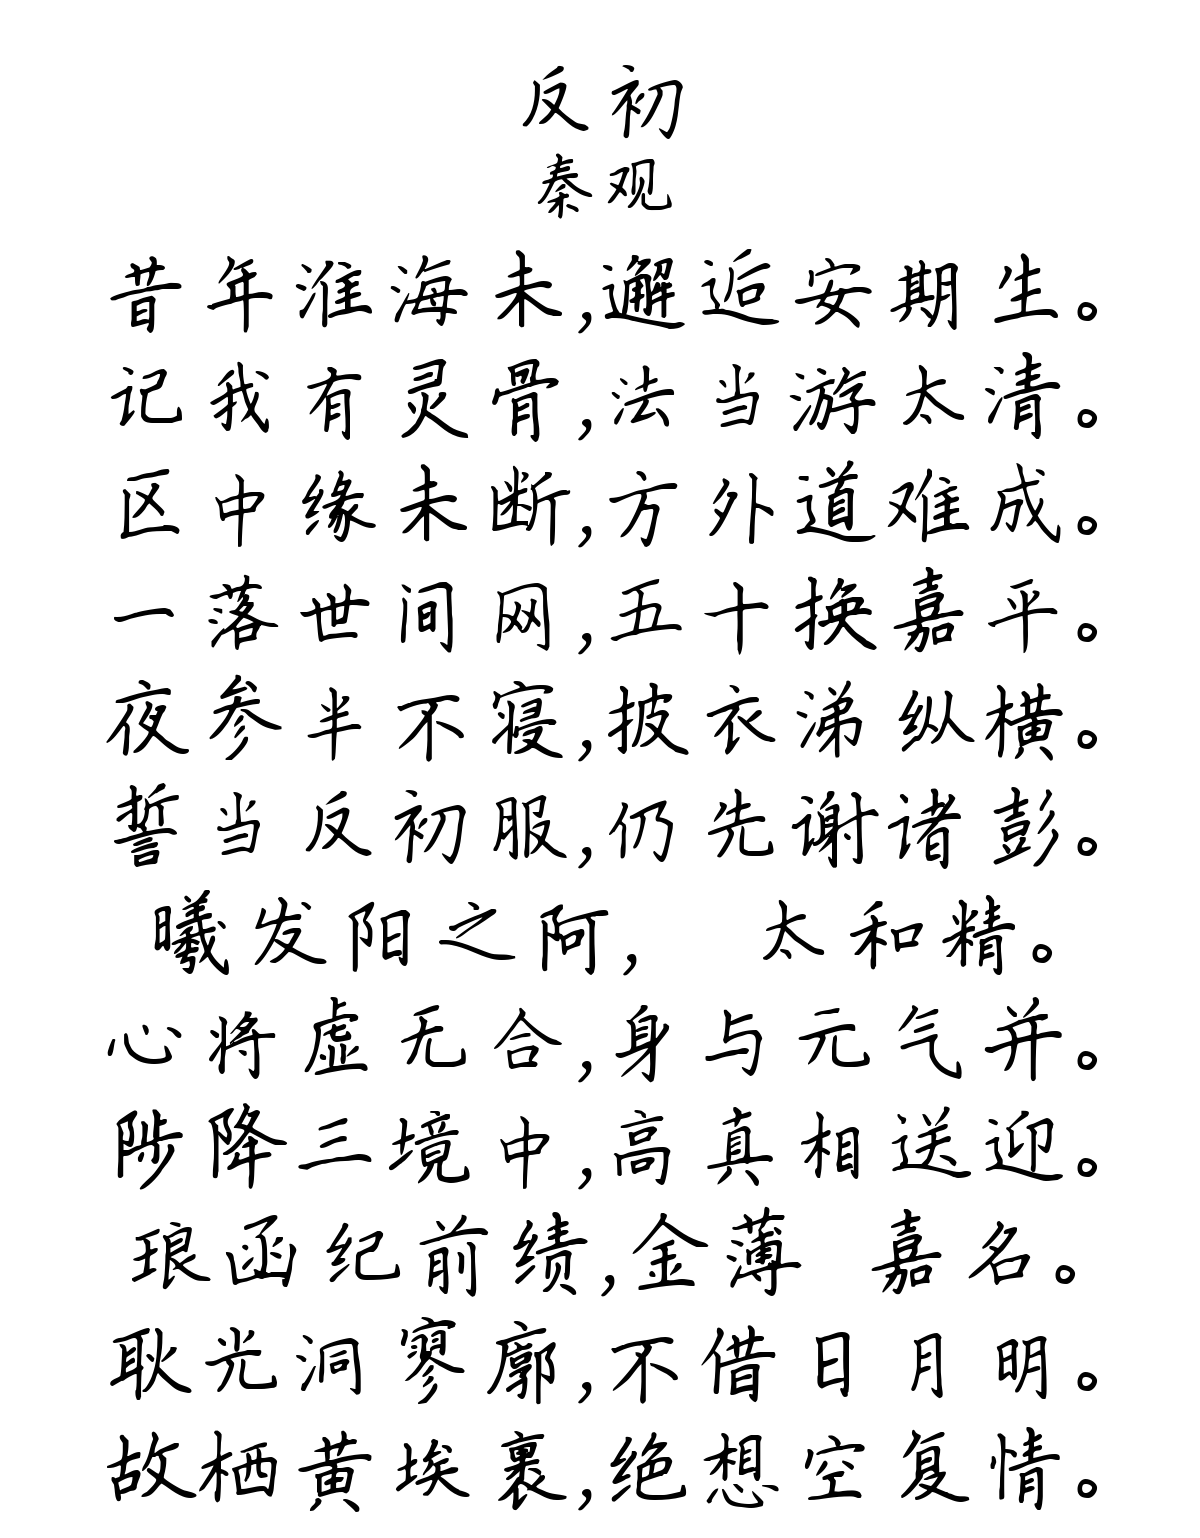 反初
秦观
昔年淮海未,邂逅安期生。
记我有灵骨,法当游太清。
区中缘未断,方外道难成。
一落世间网,五十换嘉平。
夜参半不寝,披衣涕纵横。
誓当反初服,仍先谢诸彭。
曦发阳之阿, 太和精。
心将虚无合,身与元气并。
陟降三境中,高真相送迎。
琅函纪前绩,金薄 嘉名。
耿光洞寥廓,不借日月明。
故栖黄埃裹,绝想空复情。